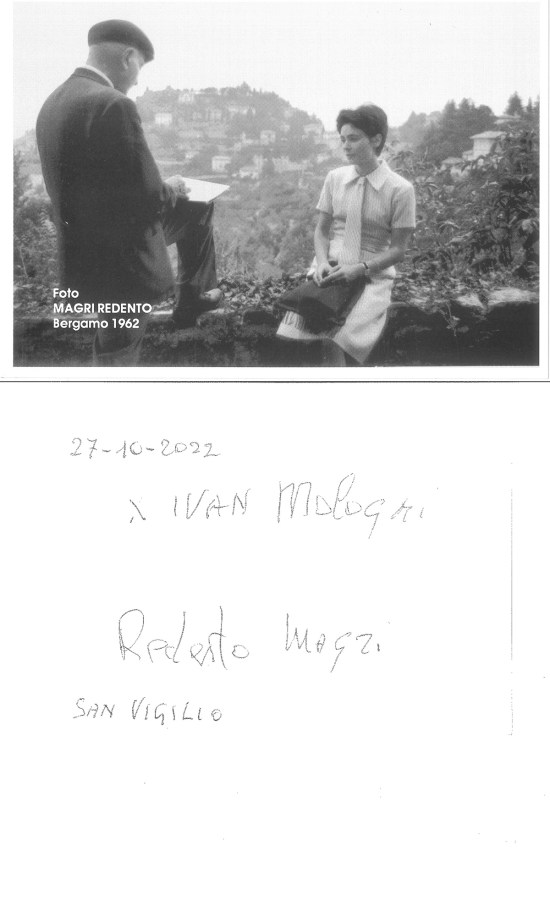 Foto
MAGRI REDENTO
Bergamo 1962
27-10-2022
x IVAN
Redento Magri
SAN VIGILIO